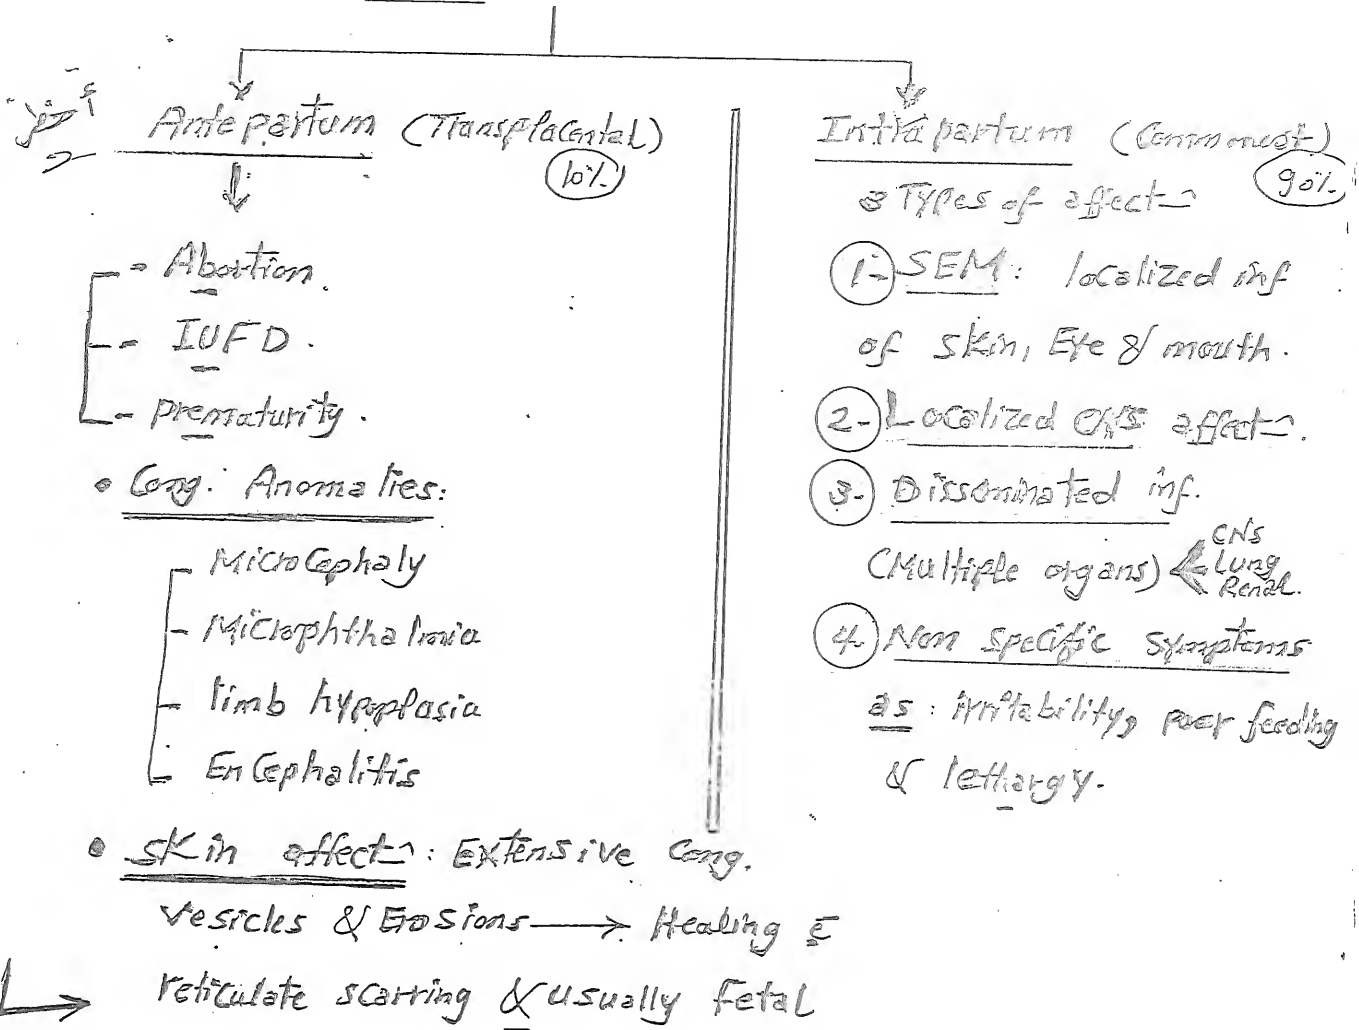 Antepartum (Transplacental)
10%
- Abortion.
- IUFD.
- prematurity.
• Cong. Anomalies:
Microcephaly
- Microphthalmia
- limb hypoplasia
- Encephalitis
• skin affect⌢: Extensive Cong.
vesicles & Erosions → Healing c̄
reticulate scarring & usually fetal
Intrapartum (Commonest)
90%
3 Types of affect⌢
1- SEM: localized inf
of skin, Eye & mouth.
2- Localized CNS affect⌢.
3- Dissominated inf.
(Multiple organs) CNS
Lung
Renal.
4. Non specific symptoms
as: irritability, poor feeding
& lethargy.